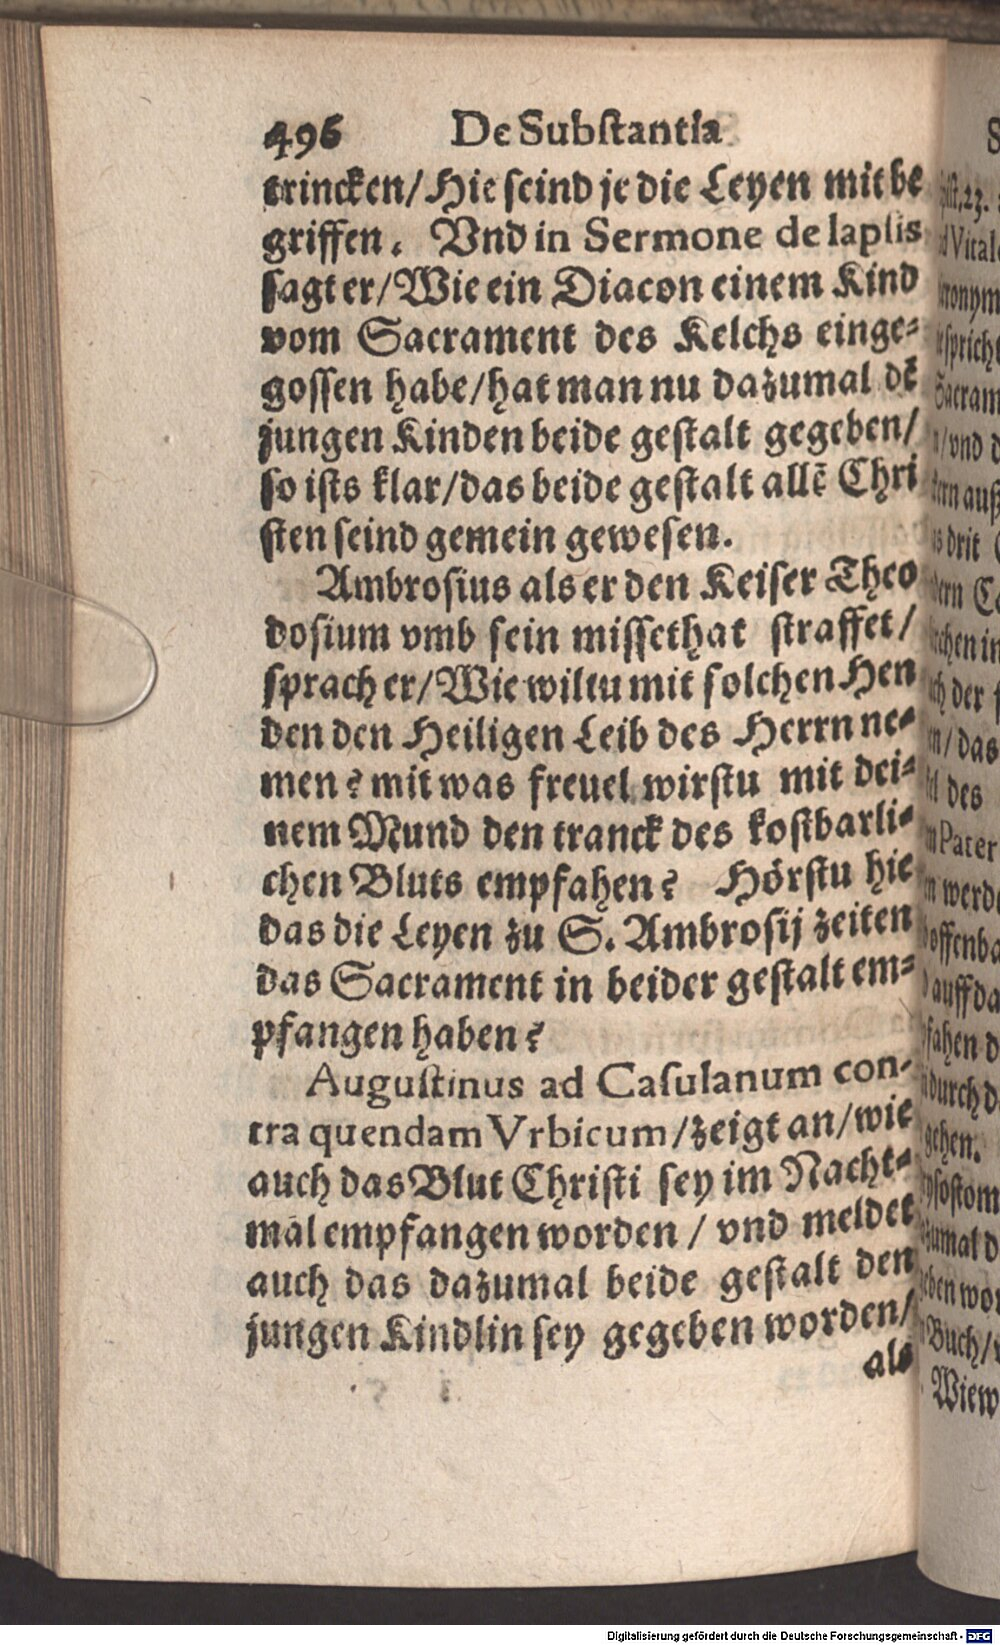 496 De Substantia
trincken/Hie seind je die Leyen mit be
griffen. Vnd in Sermone de lapsis
sagt er/Wie ein Diacon einem Kind
vom Sacrament des Kelchs einge-
gossen habe/hat man nu dazumal dē
jungen Kinden beide gestalt gegeben/
so ists klar/das beide gestalt allē Chri
sten seind gemein gewesen.
Ambrosius als er den Keiser Theo
dosium vmb sein missethat straffet/
sprach er/Wie wiltu mit solchen Hen
den den Heiligen Leib des Herrn ne-
men? mit was freuel wirstu mit dei-
nem Mund den tranck des kostbarli-
chen Bluts empfahen? Hörstu hie
das die Leyen zu S. Ambrosij zeiten
das Sacrament in beider gestalt em-
pfangen haben?
Augustinus ad Casulanum con-
tra quendam Vrbicum/zeigt an/wie
auch das Blut Christi sey im Nacht-
mal empfangen worden/vnd meldet
auch das dazumal beide gestalt den
jungen Kindlin sey gegeben worden/
als
Digitalisierung gefördert durch die Deutsche Forschungsgemeinschaft - DFG